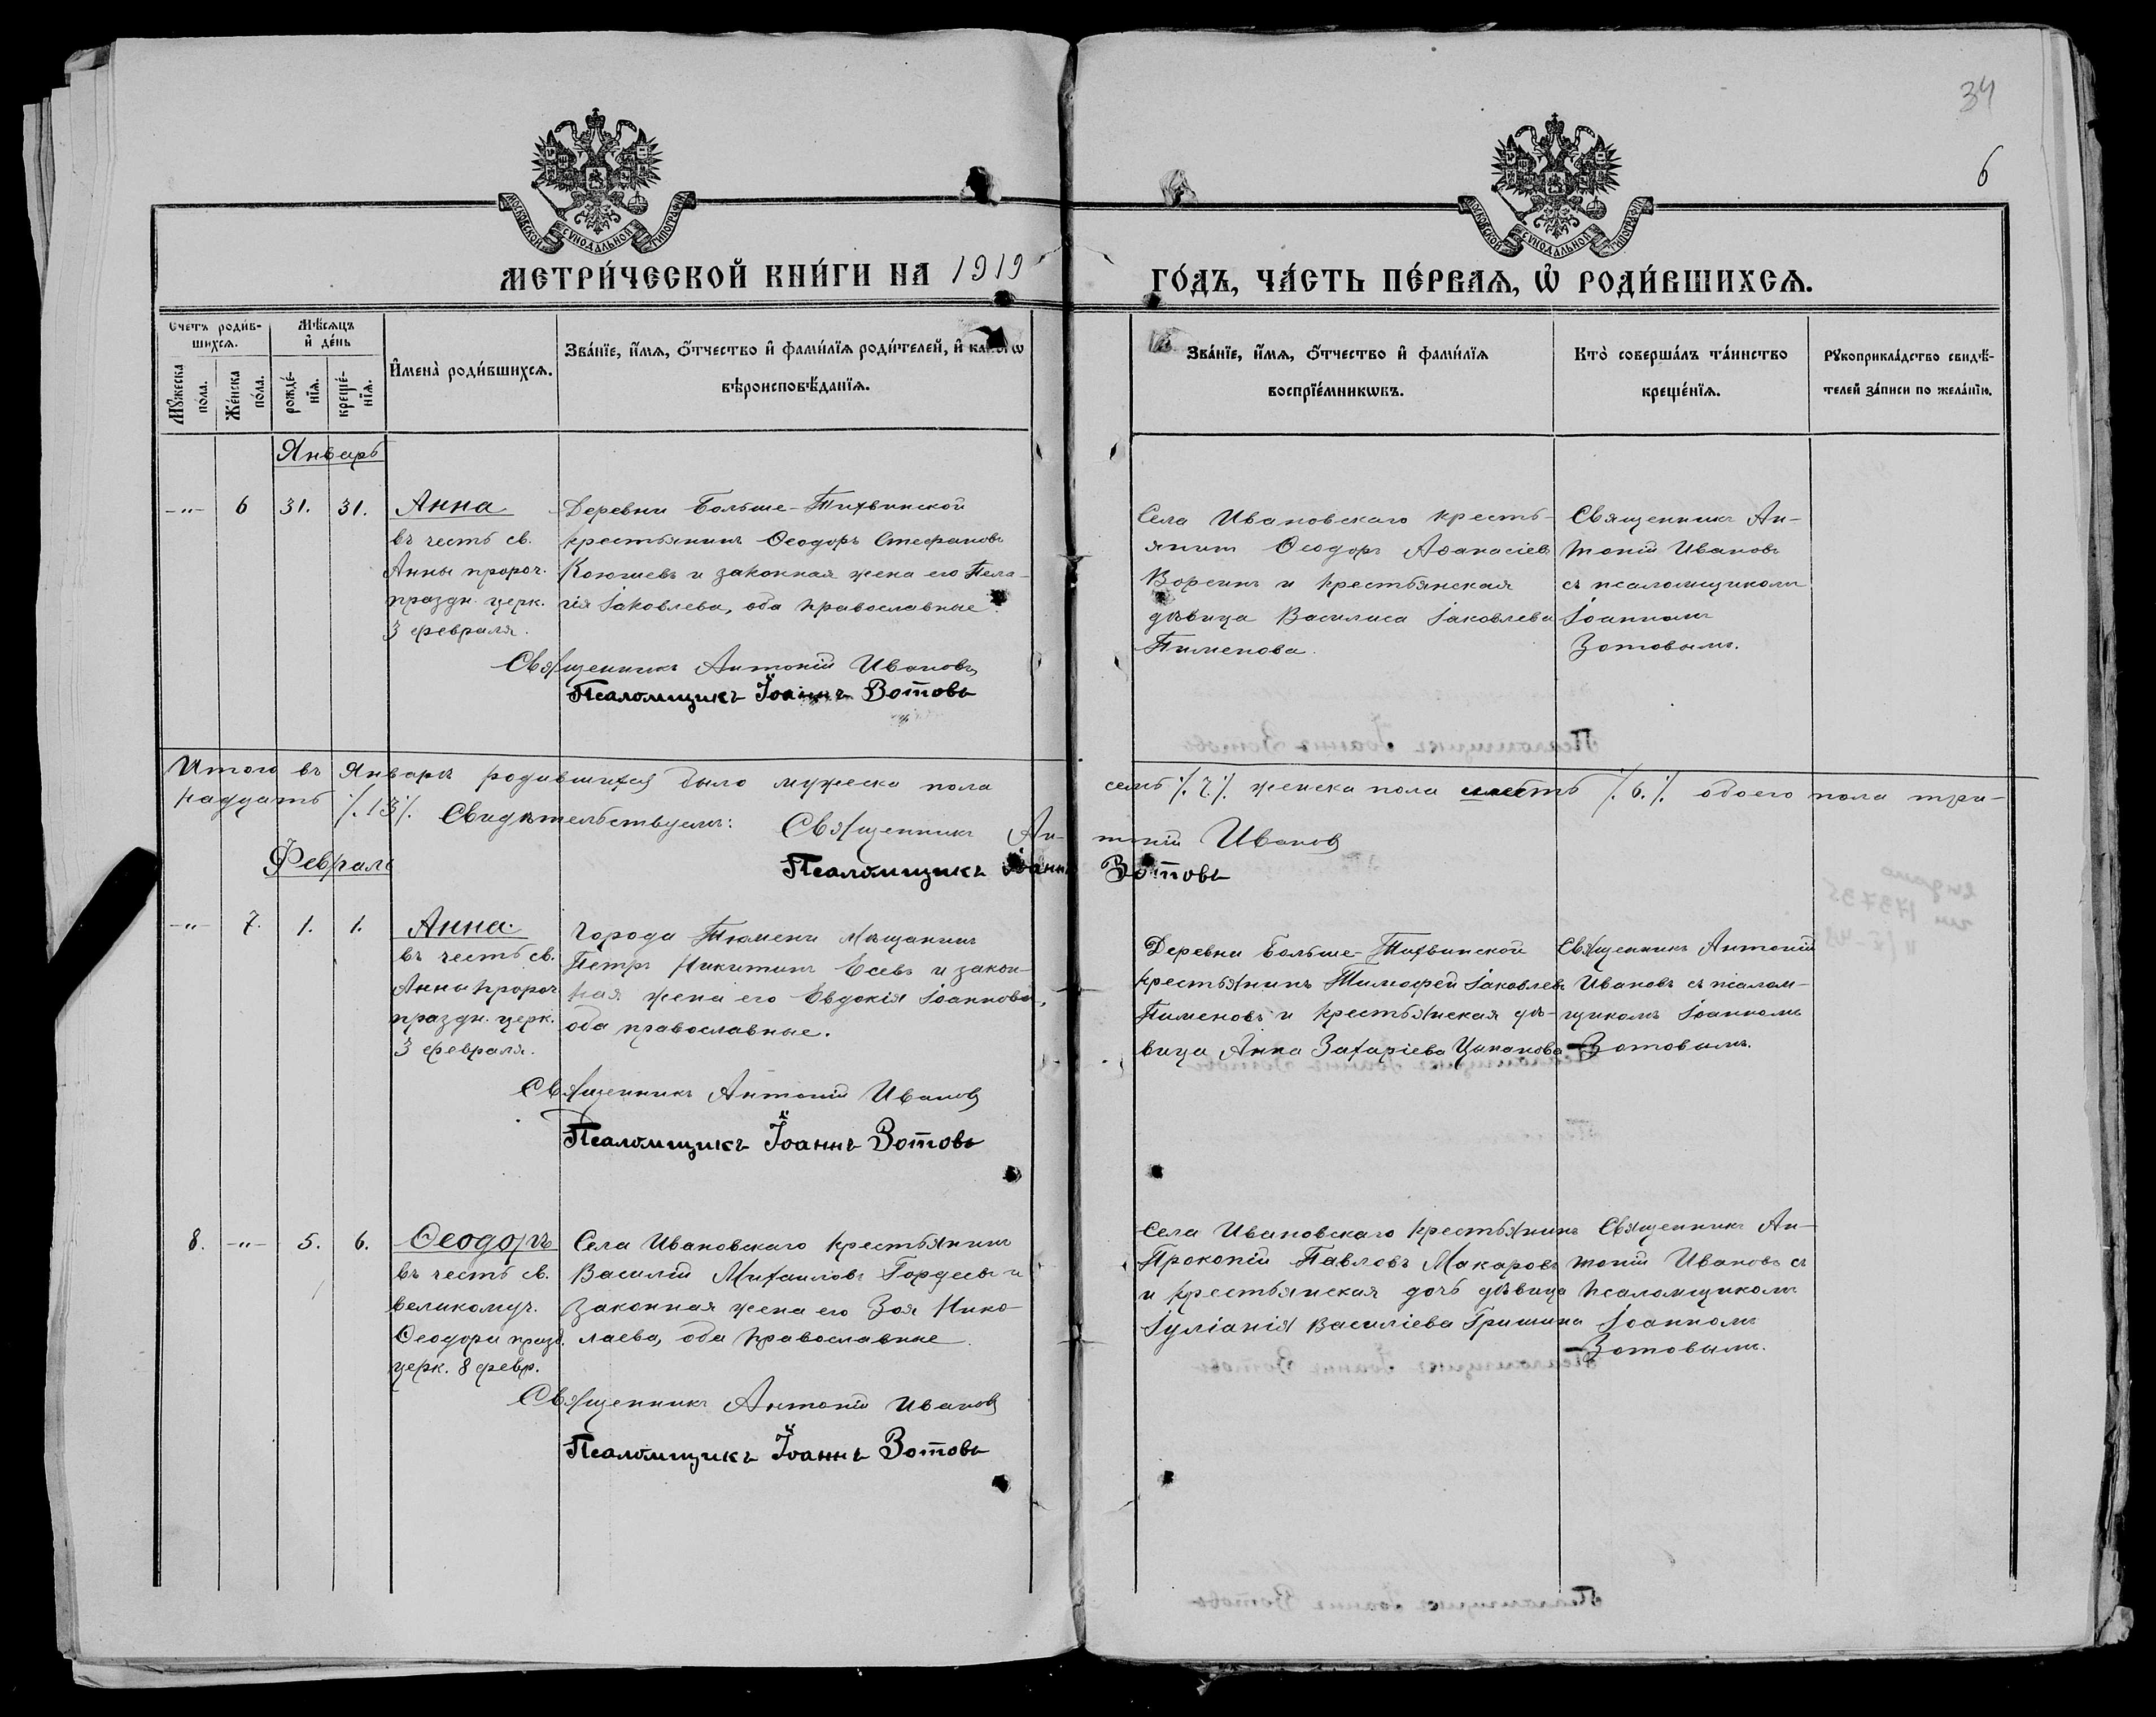 34
6
МОСКОВСКОЙ СѴНОДАЛЬНОЙ ТИПОГРАФІИ
МОСКОВСКОЙ СѴНОДАЛЬНОЙ ТИПОГРАФІИ
МЕТРИ́ЧЕСКОЙ КНИ́ГИ НА 1919 ГО́ДЪ, ЧА́СТЬ ПЕ́РВАѦ, Ѡ҆ РОДИ́ВШИХСѦ.
Счетъ роди́в-
шихсѧ.
Мꙋ́жеска
по́ла.
Же́нска
по́ла.
Мѣ́сѧцъ
и҆ де́нь
рожде́-
нїѧ.
креще́-
нїѧ.
И҆мена̀ роди́вшихсѧ.
Зва́нїе, и҆́мѧ, ѻ҆́тчество и҆ фами́лїѧ роди́телей, и҆
вѣроисповѣ́данїѧ.
Зва́нїе, и҆́мѧ, ѻ҆́тчество и҆ фами́лїѧ
воспрїе́мникѡвъ.
Кто̀ соверша́лъ та́инство
креще́нїѧ.
Рꙋкоприкла́дство свидѣ́-
телей за́писи по жела́нїю.
Январь
-"- 6 31. 31.
Анна
въ честь св.
Анны пророч.
праздн. церк.
3 февраля.
Деревни Больше-Тихвинской
крестьянинъ Ѳеодоръ Стефановъ
и законная жена его Пела-
гія Іаковлева, оба православные.
Священникъ Антоній Ивановъ
Псаломщикъ Іоаннъ Зотовъ
Села Ивановскаго кресть-
янин Ѳеодоръ Аѳанасіевъ
Ворсинъ и крестьянская
дѣвица Василиса Іаковлева
Пименова.
Священникъ Ан-
тоній Ивановъ
съ псаломщикомъ
Іоанномъ
Зотовымъ.
Итого въ Январѣ родившихся было мужеска пола семь /.7./ женска пола шесть /.6./ обоего пола три-
надцать /.13/. Свидѣтельствуемъ: Священникъ Антоній Ивановъ
Псаломщикъ Іоаннъ Зотовъ
Февраль
-"- 7. 1. 1.
Анна.
въ честь св.
Анны пророч.
праздн. церк.
3 февраля.
Города Тюмени мѣщанинъ
Петръ Никитинъ Есевъ и закон-
ная жена его Евдокія Іоаннова,
оба православные.
Священникъ Антоній Ивановъ
Псаломщикъ Іоаннъ Зотовъ
Деревни Больше-Тихвинской
крестьянинъ Тимофей Іаковлевъ
Пименовъ и крестьянская дѣ-
вица Анна Захаріева Цыканова
Священникъ Антоній
Ивановъ съ псалом-
щикомъ Іоанномъ
Зотовымъ.
8. -"- 5. 6.
Ѳеодоръ
въ честь св.
великомуч.
Ѳеодора празд.
церк. 8 февр.
Села Ивановскаго крестьянинъ
Василій Михаиловъ Гордеевъ и
законная жена его Зоя Нико-
лаева, оба православные.
Священникъ Антоній Ивановъ
Псаломщикъ Іоаннъ Зотовъ
Села Ивановскаго крестьянинъ
Прокопій Павловъ Макаровъ
и крестьянская дочь дѣвица
Іуліанія Василіева Гришина
Священникъ Ан-
тоній Ивановъ съ
псаломщикомъ
Іоанномъ
Зотовымъ.